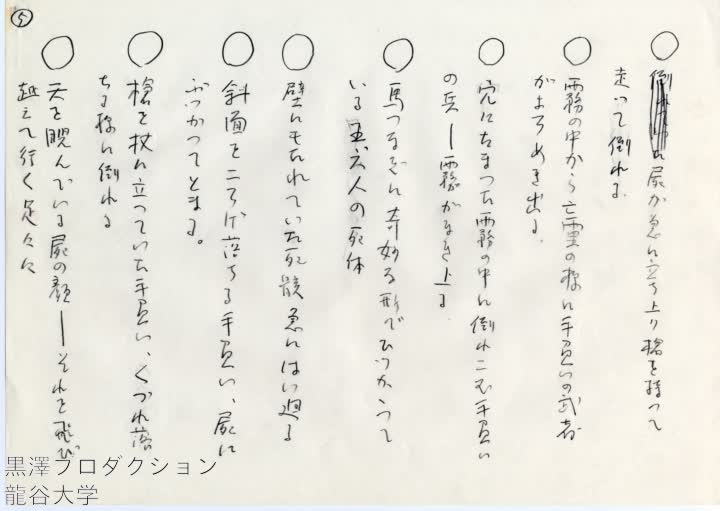 ⑤
○ 屍が急に立ち上り槍を持つて
走つて倒れる
○ 霧の中から亡霊の様に手負いの武者
がよろめき出る、
○ 穴にたまつた霧の中に倒れこむ手負い
の兵ー霧がまき上る
○ 馬つなぎに奇妙な形でひつかゝつて
いる五六人の死体
○ 壁にもたれていた死骸急にはい廻る
○ 斜面をころげ落ちる手負い、屍に
ぶつかつてとまる。
○ 槍を杖に立つていた手負い、くづれ落
ちる様に倒れる
○ 天を睨んでいる屍の顔ーそれを飛び
越えて行く足々々
黒澤プロダクション
龍谷大学